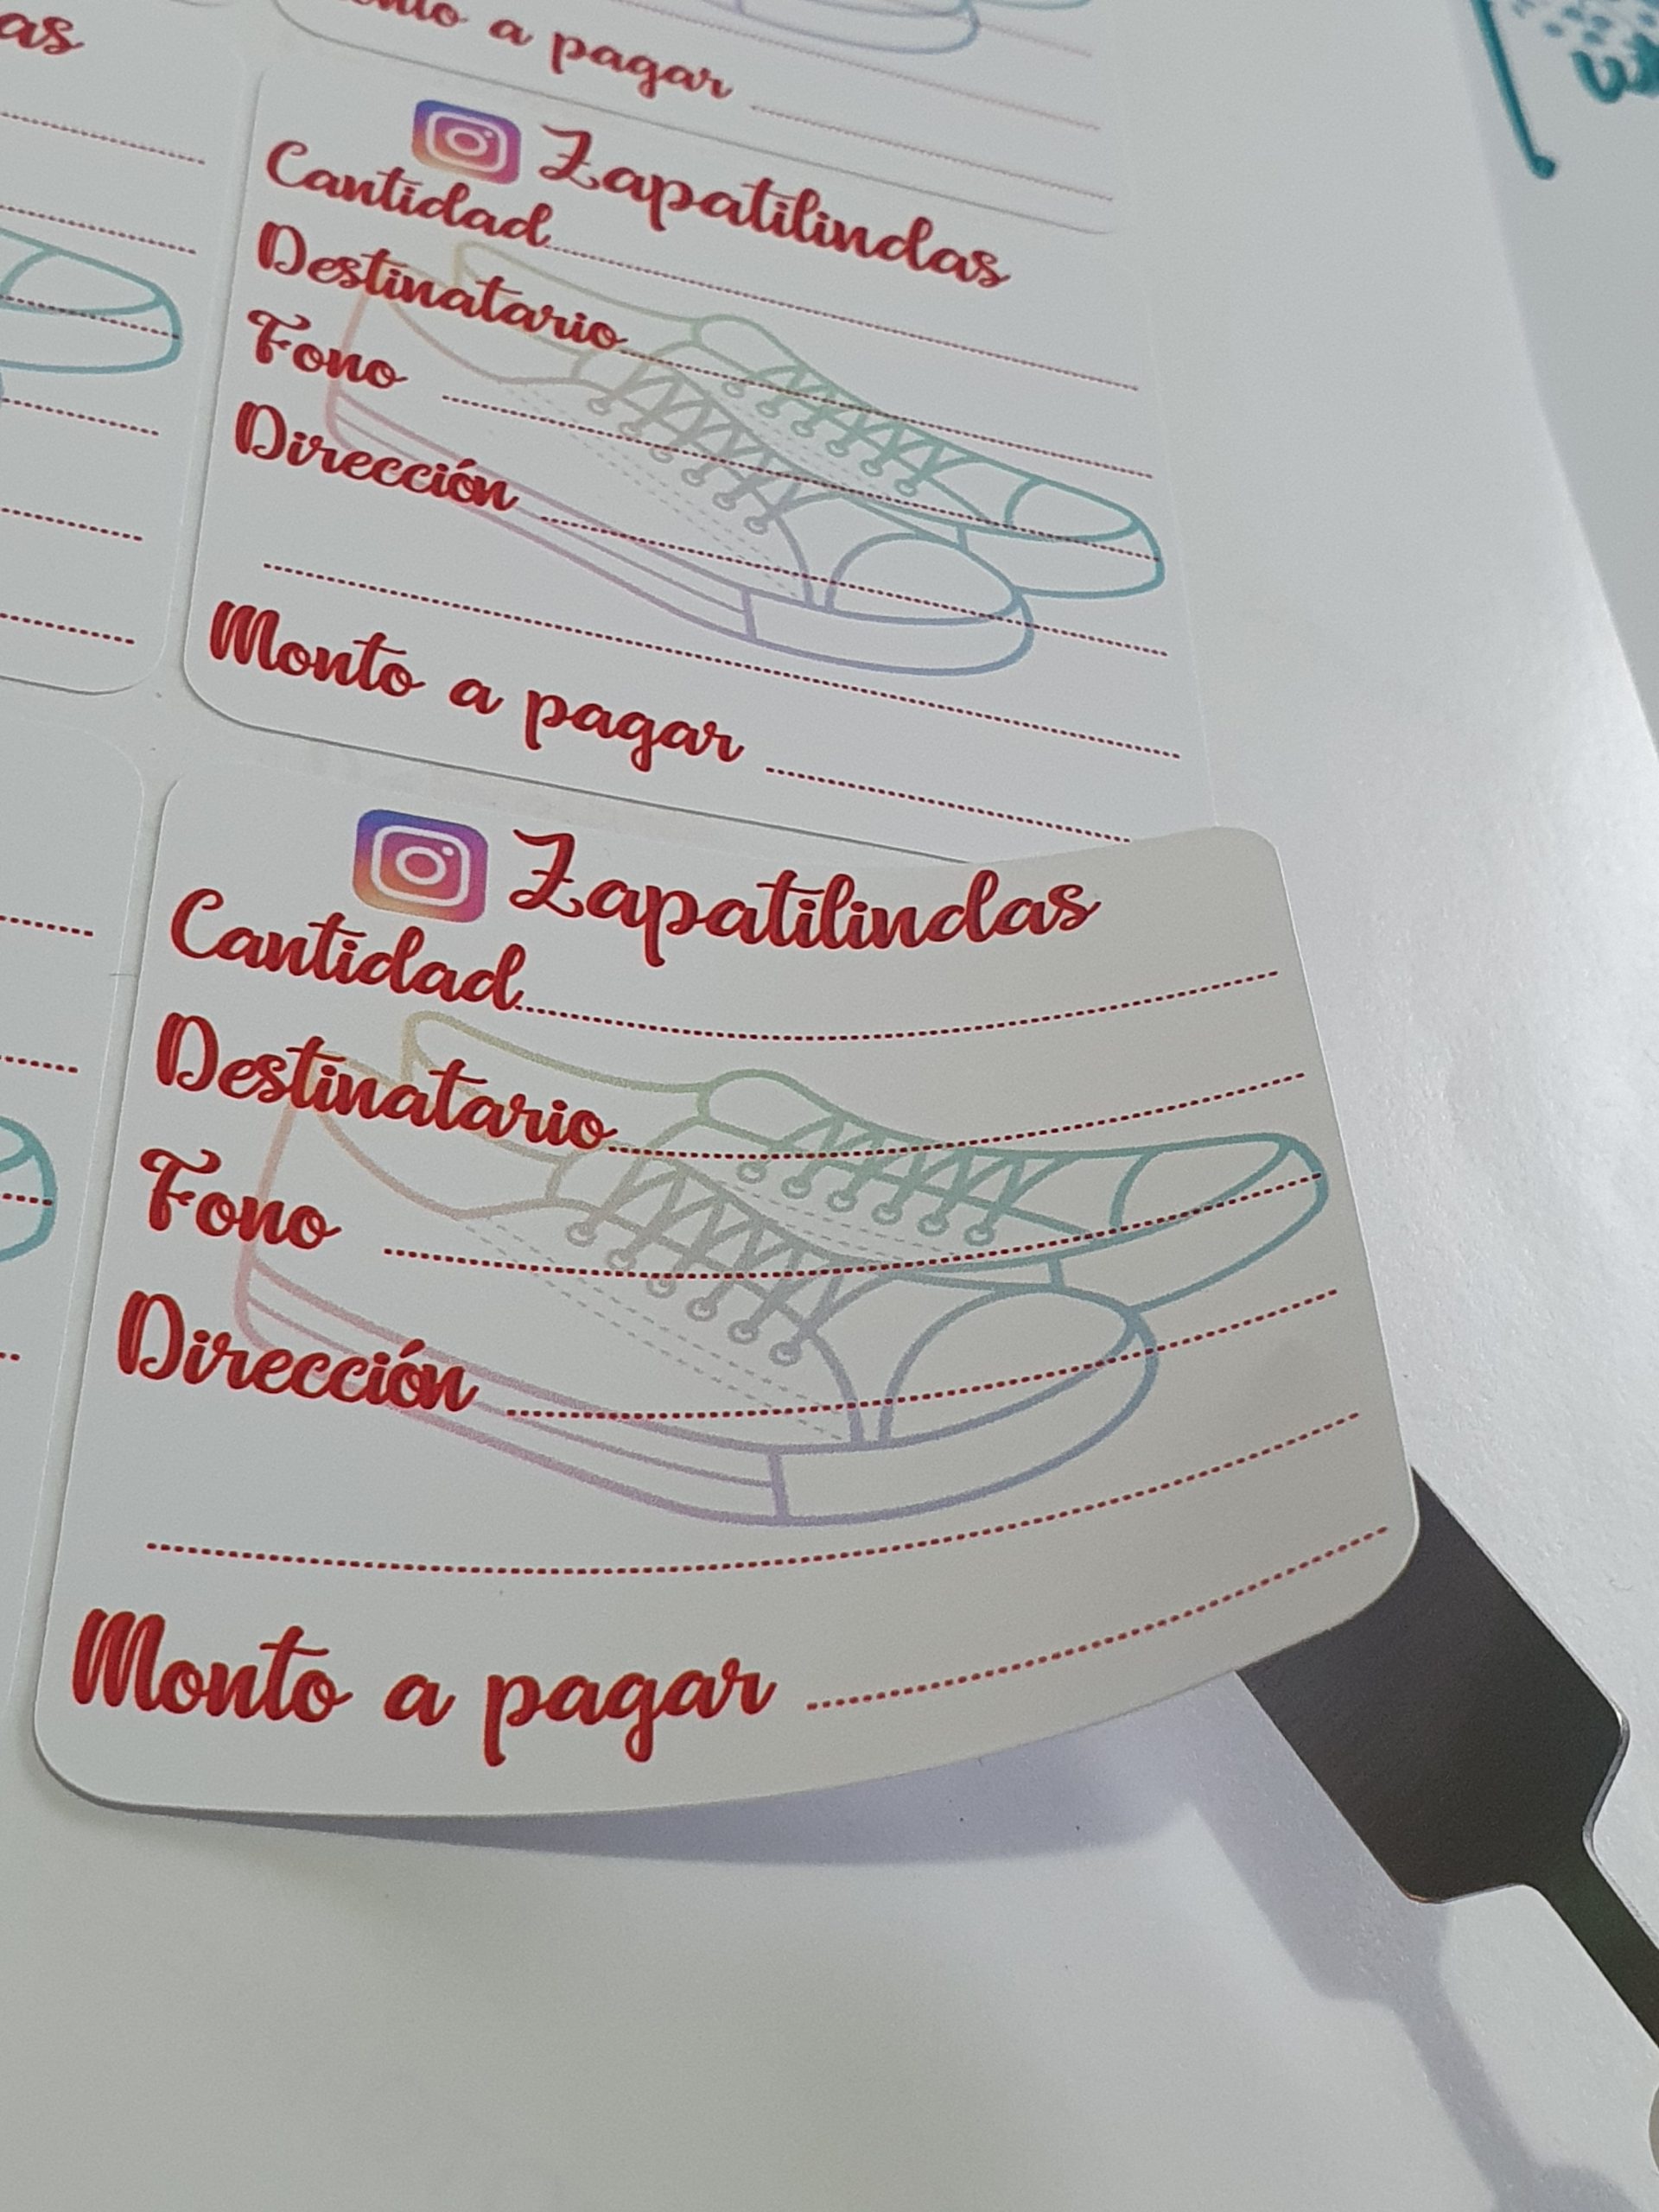 as
a pagar
Zapatilindas
Cantidad
Destinatario
Fono
Dirección
Monto a pagar
Zapatilindas
Cantidad
Destinatario
Fono
Dirección
Monto a pagar